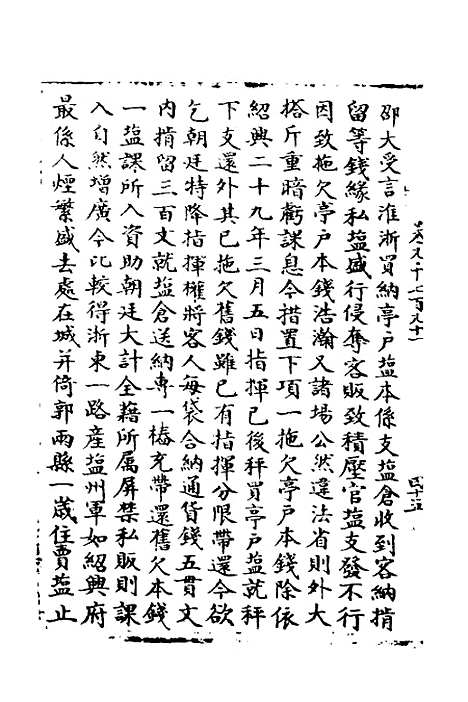 邵大受言淮浙買納亭戶塩本係支塩倉收到客納掯
留等錢緣私塩盛行侵奪客販致積壓官塩支發不行
因致拖欠亭戶本錢浩瀚又諸場公然違法省則外大
搭斤重暗虧課息今措置下項一拖欠亭戶本錢除依
紹興二十九年三月五日指揮已後秤買亭戶塩就秤
下支還外其已拖欠舊錢雖已有指揮分限帶還今欲
乞朝廷特降指揮權將客人每袋合納通貨錢五貫文
內掯留三百文就塩倉送納專一樁充帶還舊欠本錢
一塩課所入資助朝廷大計全藉所属屏禁私販則課
入自然增廣今比較得浙東一路產塩州軍如紹興府
最係人煙繁盛去處在城并倚郭兩縣一歲住賣塩止